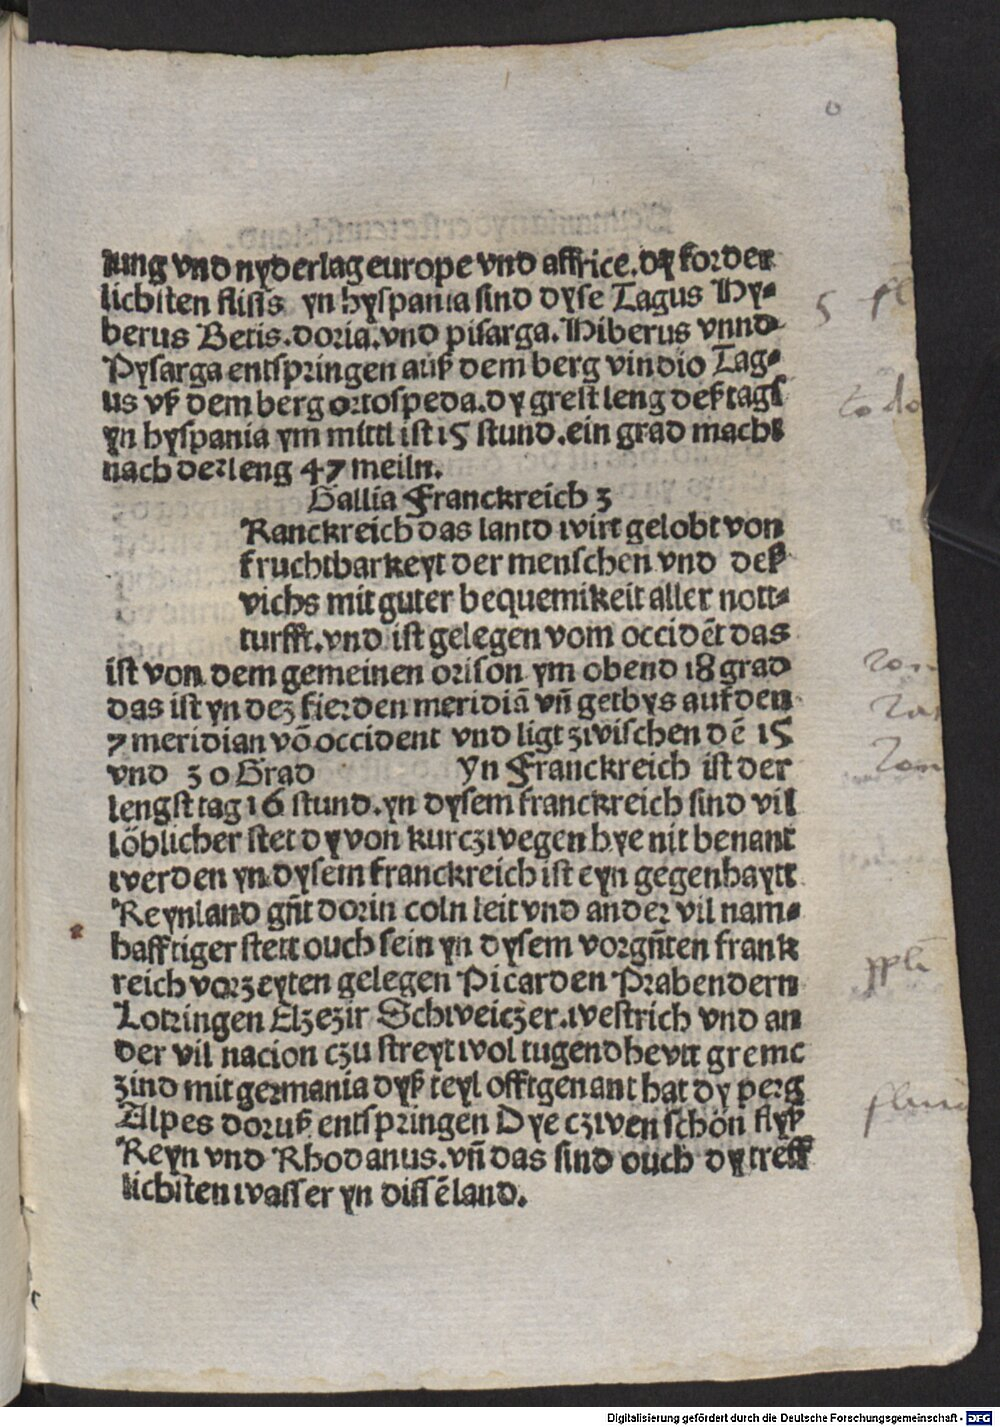 kung vnd nyderlag europe vnd affrice. dy forder
lichsten fliss yn hyspania sind dyse Tagus Hy-
berus Betis. doria. vnd pisarga. Hiberus vnnd
Pysarga entspringen auß dem berg vindio Tag-
us vß dem berg ortospeda. dy grest leng deß tags
yn hyspania ym mittl ist 15 stund. ein grad macht
nach der leng 47 meiln.
Gallia Franckreich 3
Ranckreich das lantd wirt gelobt von
fruchtbarkeyt der menschen vnd deß
vichs mit guter bequemikeit aller nott-
turfft. vnd ist gelegen vom occidēt das
ist von dem gemeinen orison ym obend 18 grad
das ist yn dez fierden meridiā vn̄ gethys auf den
7 meridian vō occident vnd ligt zwischen dē 15
vnd 30 Grad yn Franckreich ist der
lengst tag 16 stund. yn dysem franckreich sind vil
löblicher stet dy von kurcz wegen hye nit benant
werden yn dysem franckreich ist eyn gegenhaytt
Reynland gn̄t dorin coln leit vnd ander vil nam-
hafftiger stett ouch sein yn dysem vorgn̄ten frank
reich vorzeyten gelegen Picarden Prabendern
Lotringen Elzezir Schweiczer. westrich vnd an
der vil nacion czu streyt wol tugend heytt gremc
zind mit germania dyß teyl offtgenant hat dy perg
Alpes doruß entspringen Dye czwen schön flyß
Reyn vnd Rhodanus. vn̄ das sind ouch dy treff
lichsten wasser yn dissē land.
5 fl
Digitalisierung gefördert durch die Deutsche Forschungsgemeinschaft - DFG